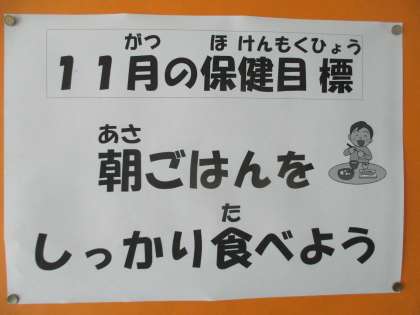 がつ ほ けんもくひょう
11月の保健目標
あさ
朝ごはんを
た
しっかり食べよう